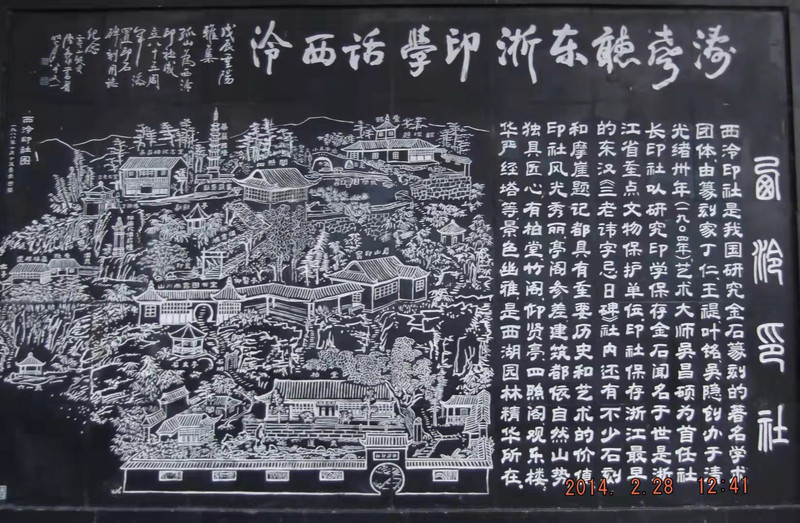 西泠印社
西泠印社是我国研究金石篆刻的著名学术
团体由篆刻家丁仁王禔叶铭吴隐创办于清
光绪卅年(一九〇四年)艺术大师吴昌硕为首任社
长印社以研究印学保存金石闻名于世是浙
江省重点文物保护单位印社保存浙江最早
的东汉《三老讳字忌日碑社内还有不少石刻
和摩崖题记都具有至要历史和艺术的价值
印社风光秀丽亭阁参差建筑都依自然山势
独具匠心有柏堂竹阁仰贤亭四照阁观乐楼
华严经塔等景色幽雅是西湖园林精华所在
濤聲聽东浙印學話西泠
戊辰重陽
雅集
孤山為西泠
印社成
立八十五周
碑刻用誌
紀念
西泠印社图
2014. 2.28 12:41